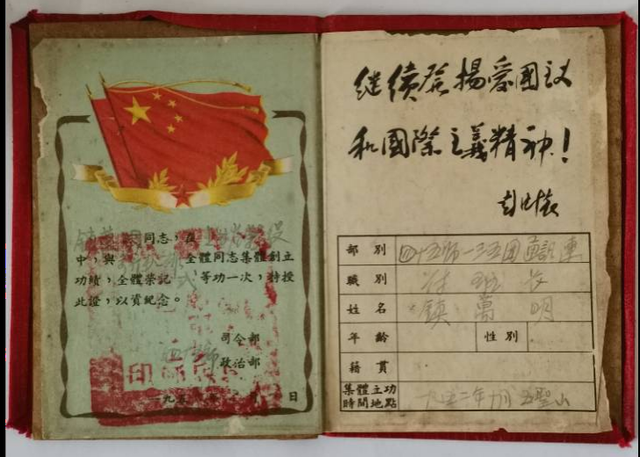 同志,在
中,與 全體同志集體創立
功績,全體榮記 等功一次,特授
此證,以資紀念。
司令部
政治部
一九五 年 月 日
继續發揚愛國主义
和國際主義精神!
彭德懷
部別 四十五师一三五團通訊連
職別 付班长
姓名 鎮萬明
年齡 性別
籍貫
集體立功時間地點 一九五二年十月五聖山